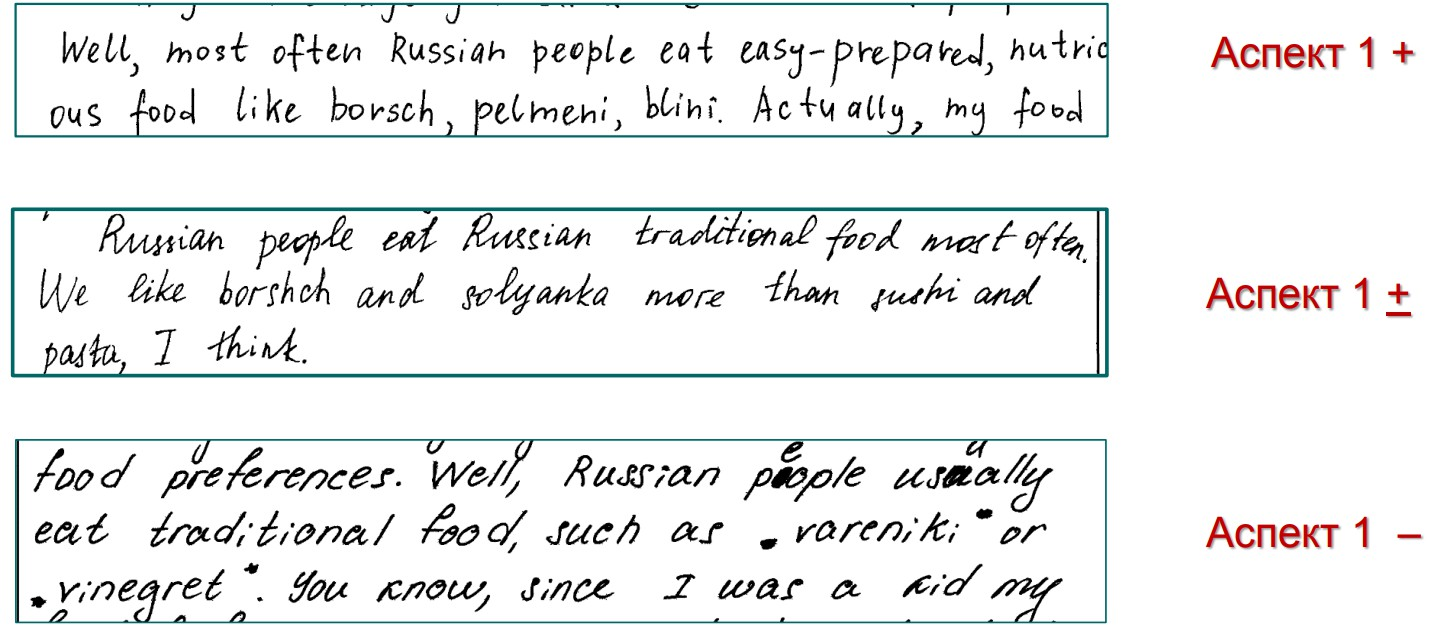 Well, most often Russian people eat easy-prepared, nutric
ous food like borsch, pelmeni, blini. Actually, my food
Аспект 1 +
Russian people eat Russian traditional food most often.
We like borshch and solyanka more than sushi and
pasta, I think.
Аспект 1 ±
food preferences. Well, Russian people usually
eat traditional food, such as „vareniki" or
„vinegret". You know, since I was a kid my
Аспект 1 –